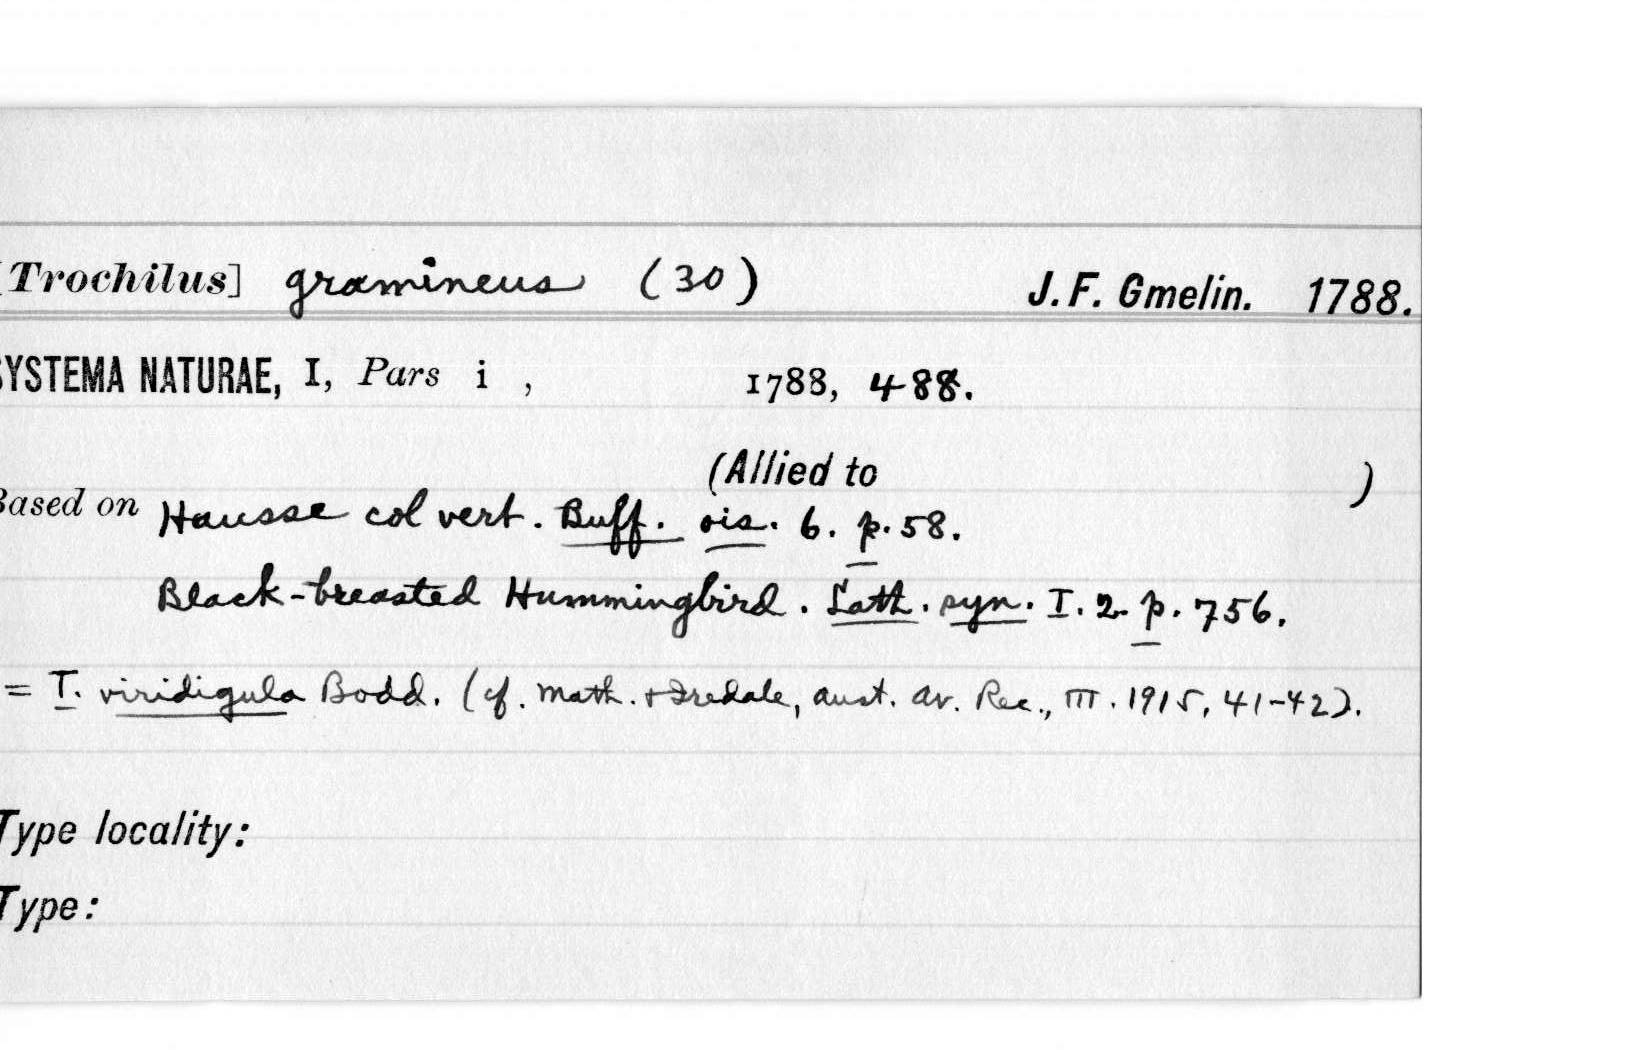 [Trochilus] gramineus (30) J. F. Gmelin. 1788.
SYSTEMA NATURAE, I, Pars i , 1788, 488.
(Allied to )
Based on Hausse col vert. Buff. ois. 6. p. 58.
Black-breasted Hummingbird. Lath. syn. I. 2 p. 756.
= T. viridigula Bodd. (cf. Math. + Iredale, Aust. Av. Rec., III. 1915, 41-42).
Type locality:
Type: